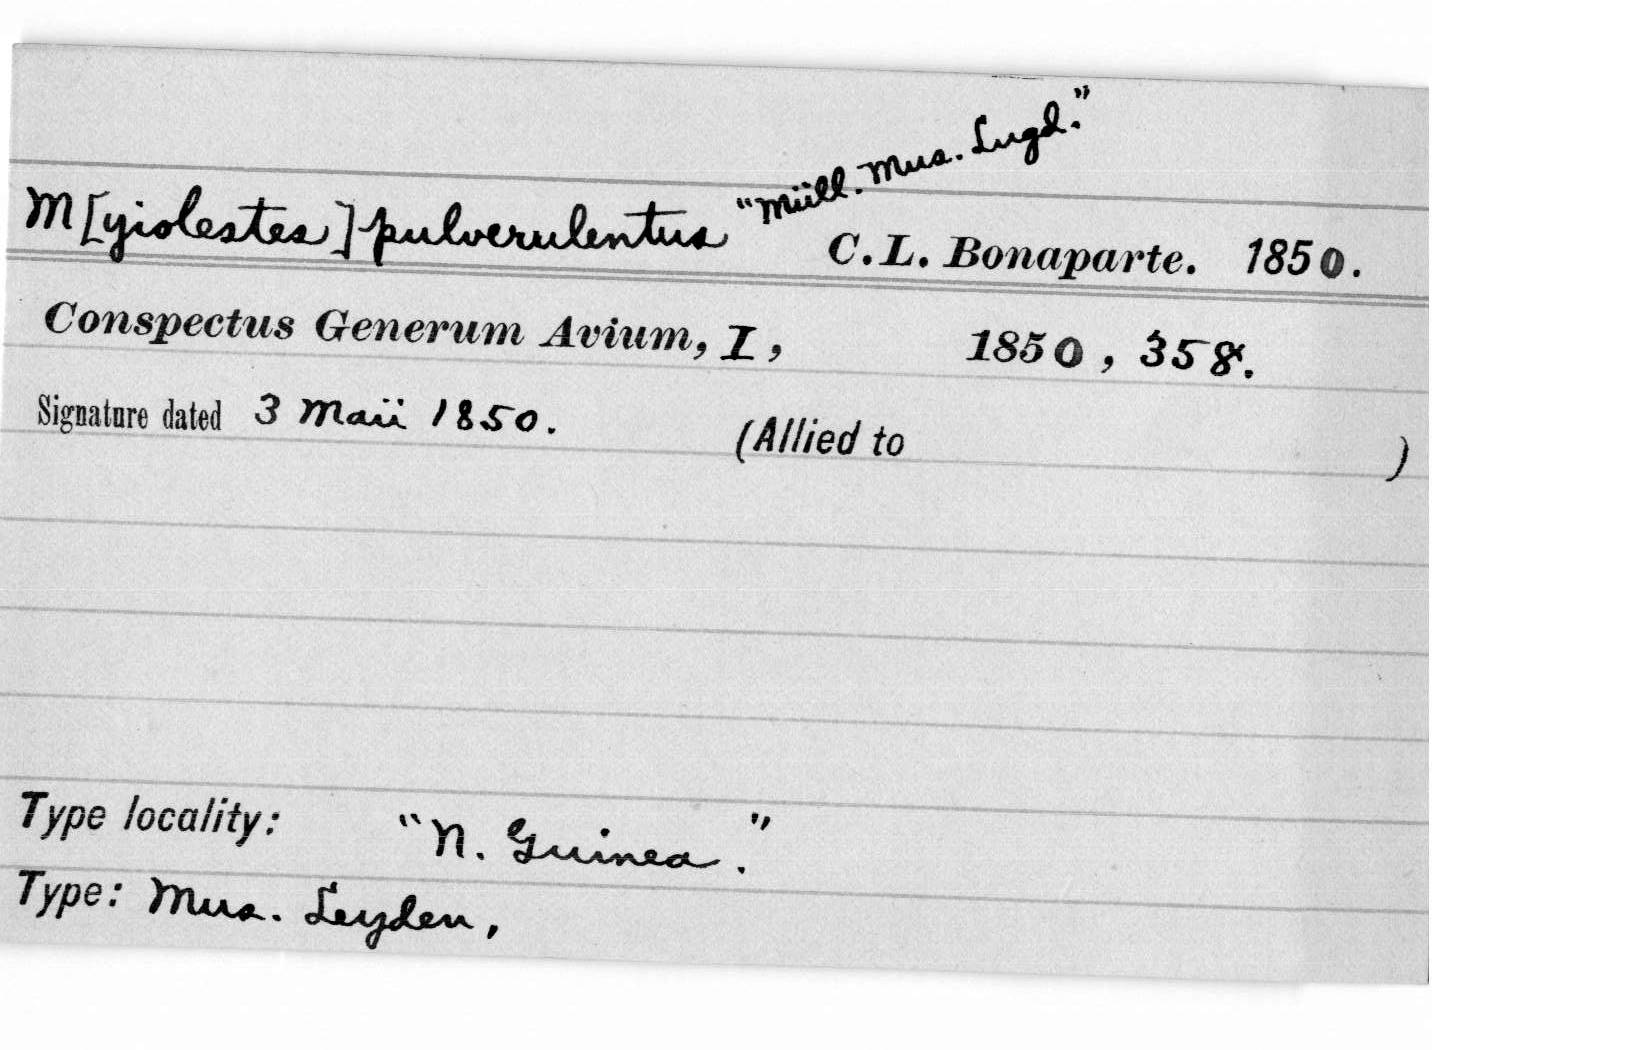 M[yiolestes] pulverulentus "Müll. Mus. Lugd."
C.L. Bonaparte. 1850.
Conspectus Generum Avium, I, 1850, 358.
Signature dated 3 Maii 1850. (Allied to )
Type locality: "N. Guinea."
Type: Mus. Leyden,